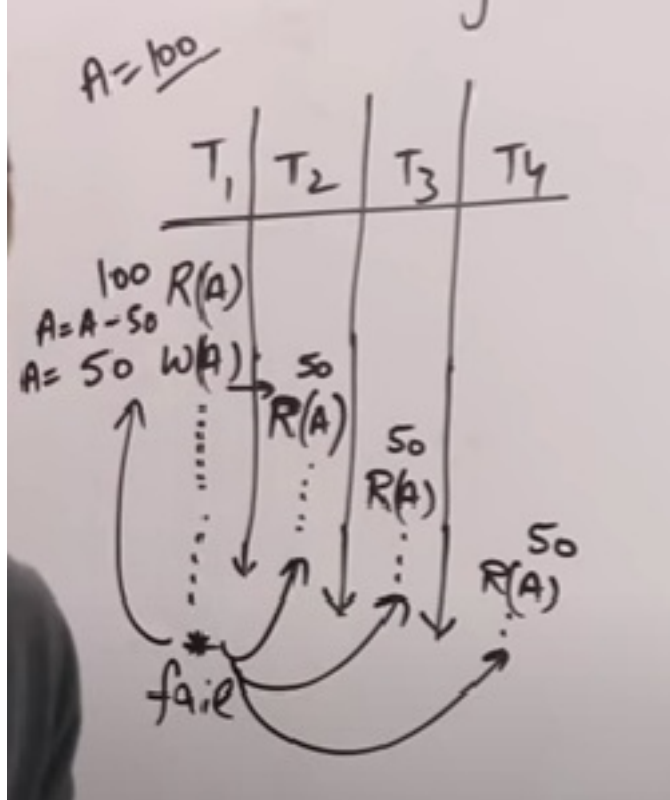 A=100
T1 T2 T3 T4
100 R(A)
A=A-50
A= 50 W(A)
50
R(A)
50
R(A)
50
R(A)
fail